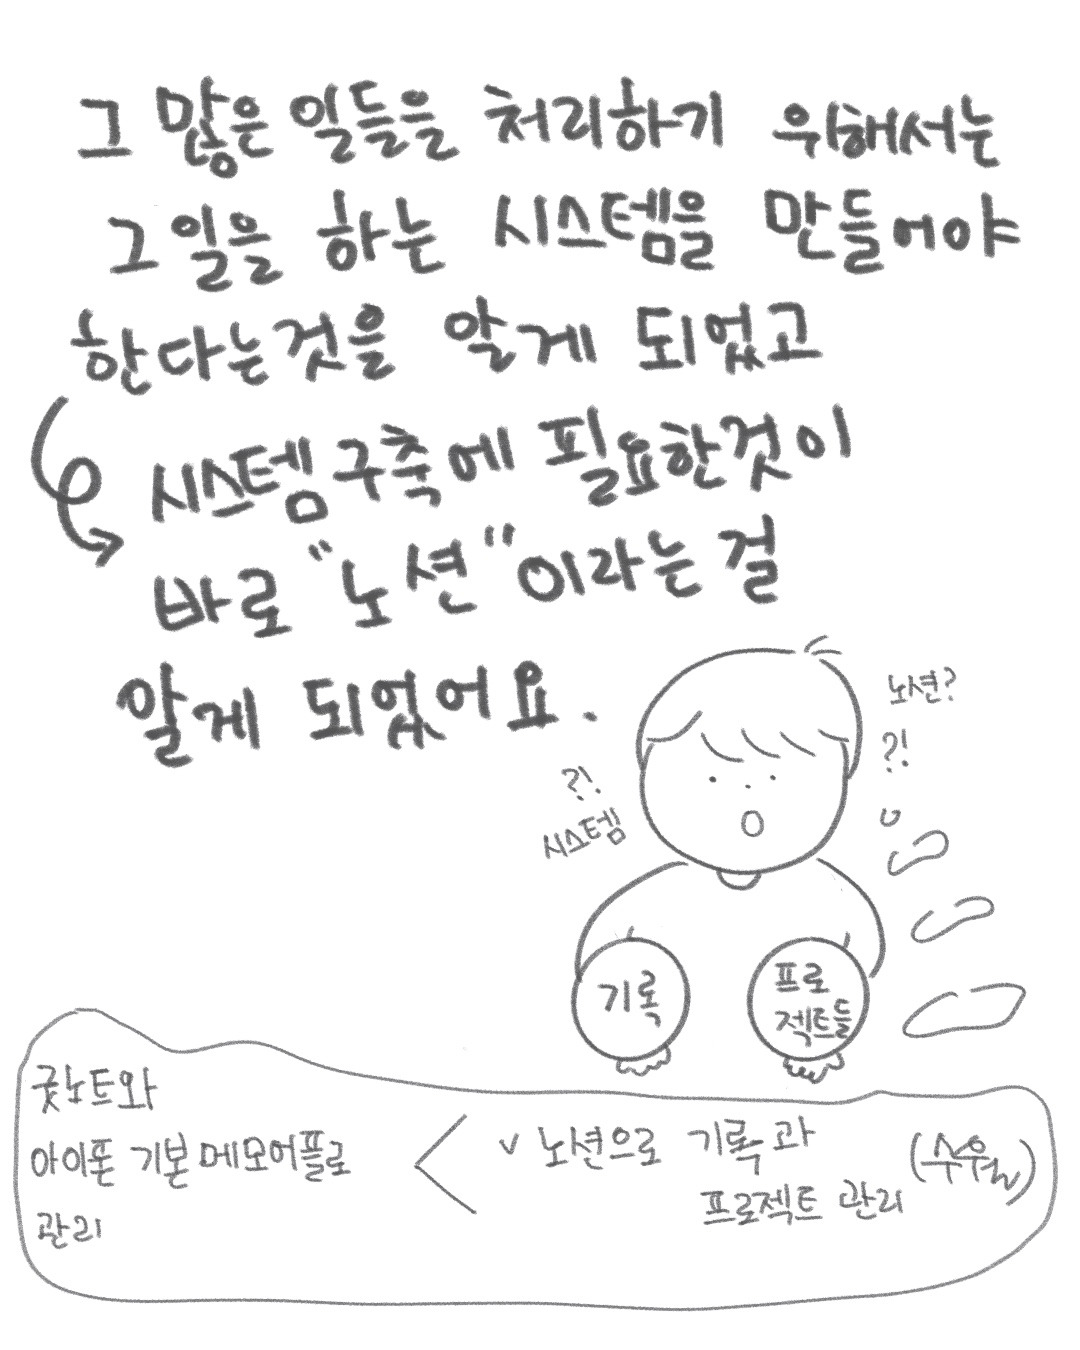 그 많은 일들을 처리하기 위해서는
그 일을 하는 시스템을 만들어야
한다는것을 알게 되었고
시스템 구축에 필요한것이
바로 "노션"이라는 걸
알게 되었어요.
노션?
?!
?!
시스템
기록
프로
젝트들
굿노트와
아이폰 기본 메모어플로
관리
< v 노션으로 기록과
프로젝트 관리
(수월)